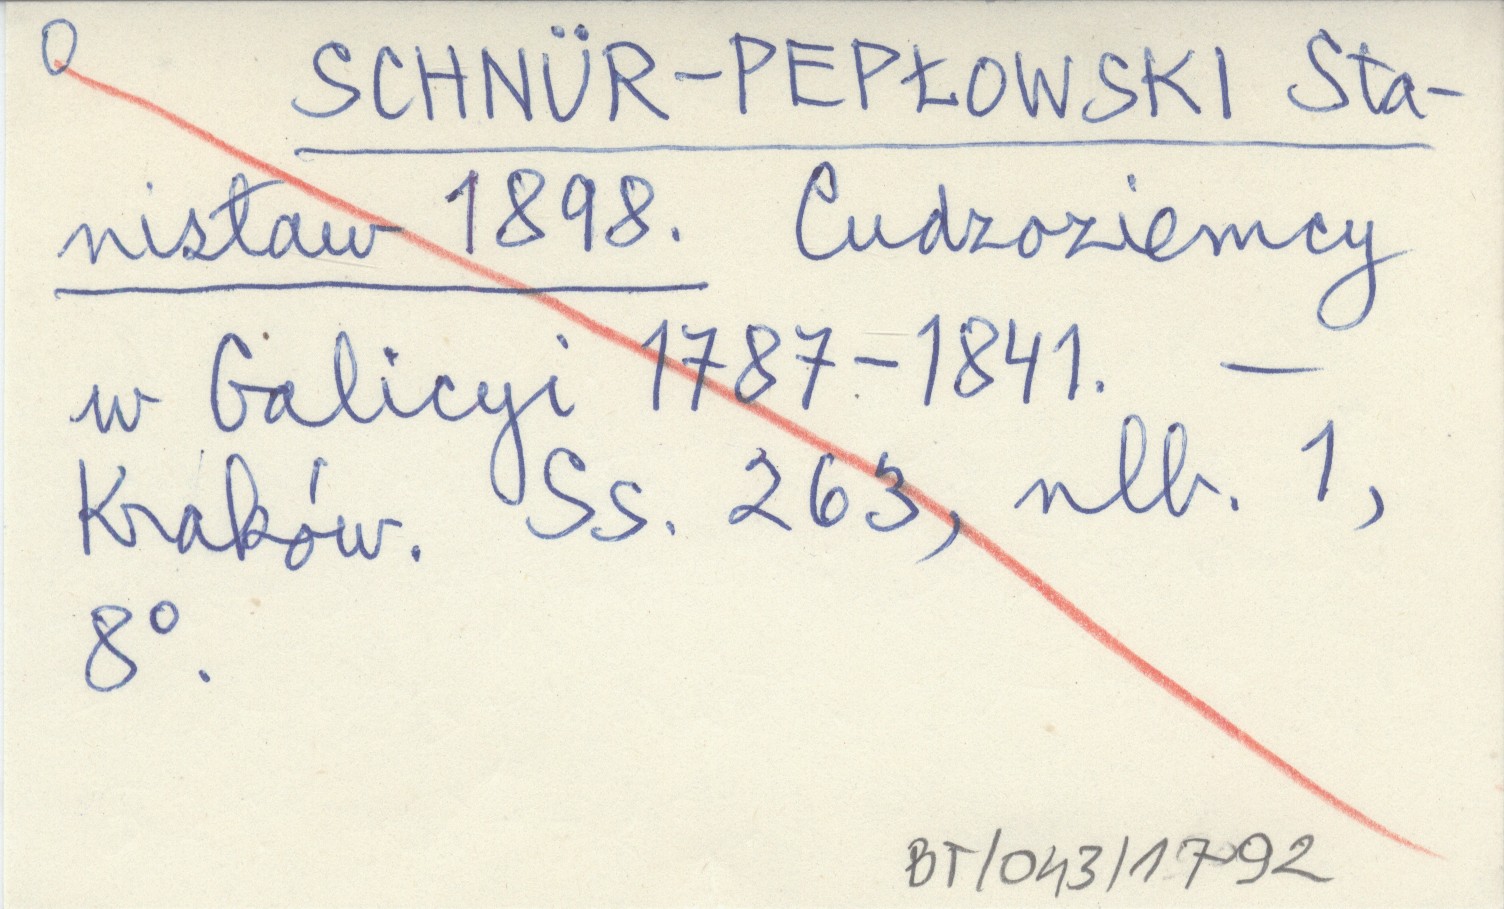 O
SCHNÜR-PEPŁOWSKI Sta-
nisław 1898. Cudzoziemcy
w Galicyi 1787-1841. —
Kraków. Ss. 263, nlb. 1,
8°.
BT/043/1792